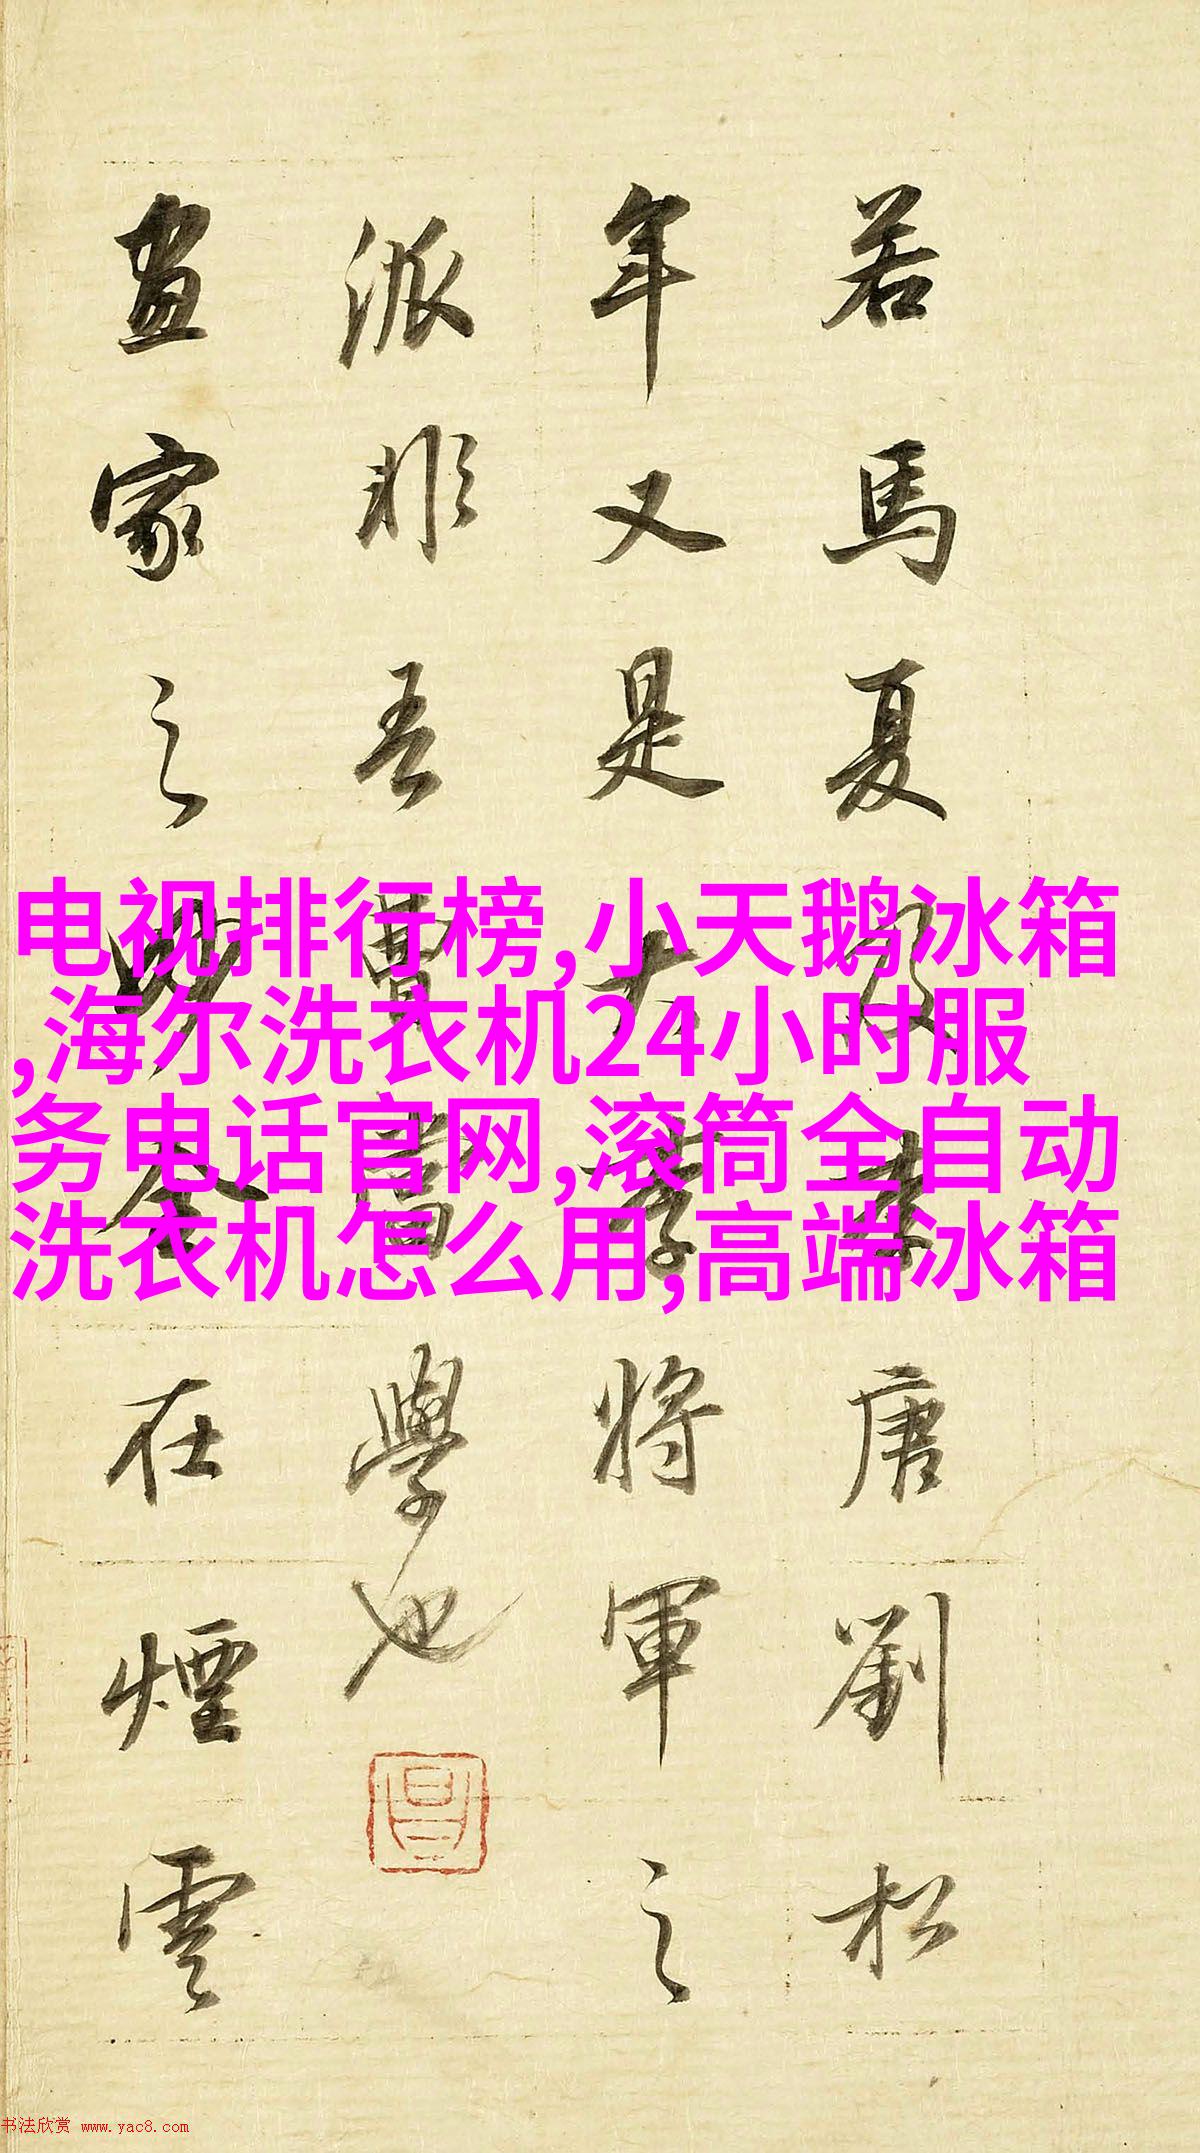 若馬夏及李唐劉松
年又是大李將軍之
派非吾曹當學也
畫家之妙全在煙雲
电视排行榜,小天鹅冰箱
,海尔洗衣机24小时服
务电话官网,滚筒全自动
洗衣机怎么用,高端冰箱
书法欣赏 www.yac8.com